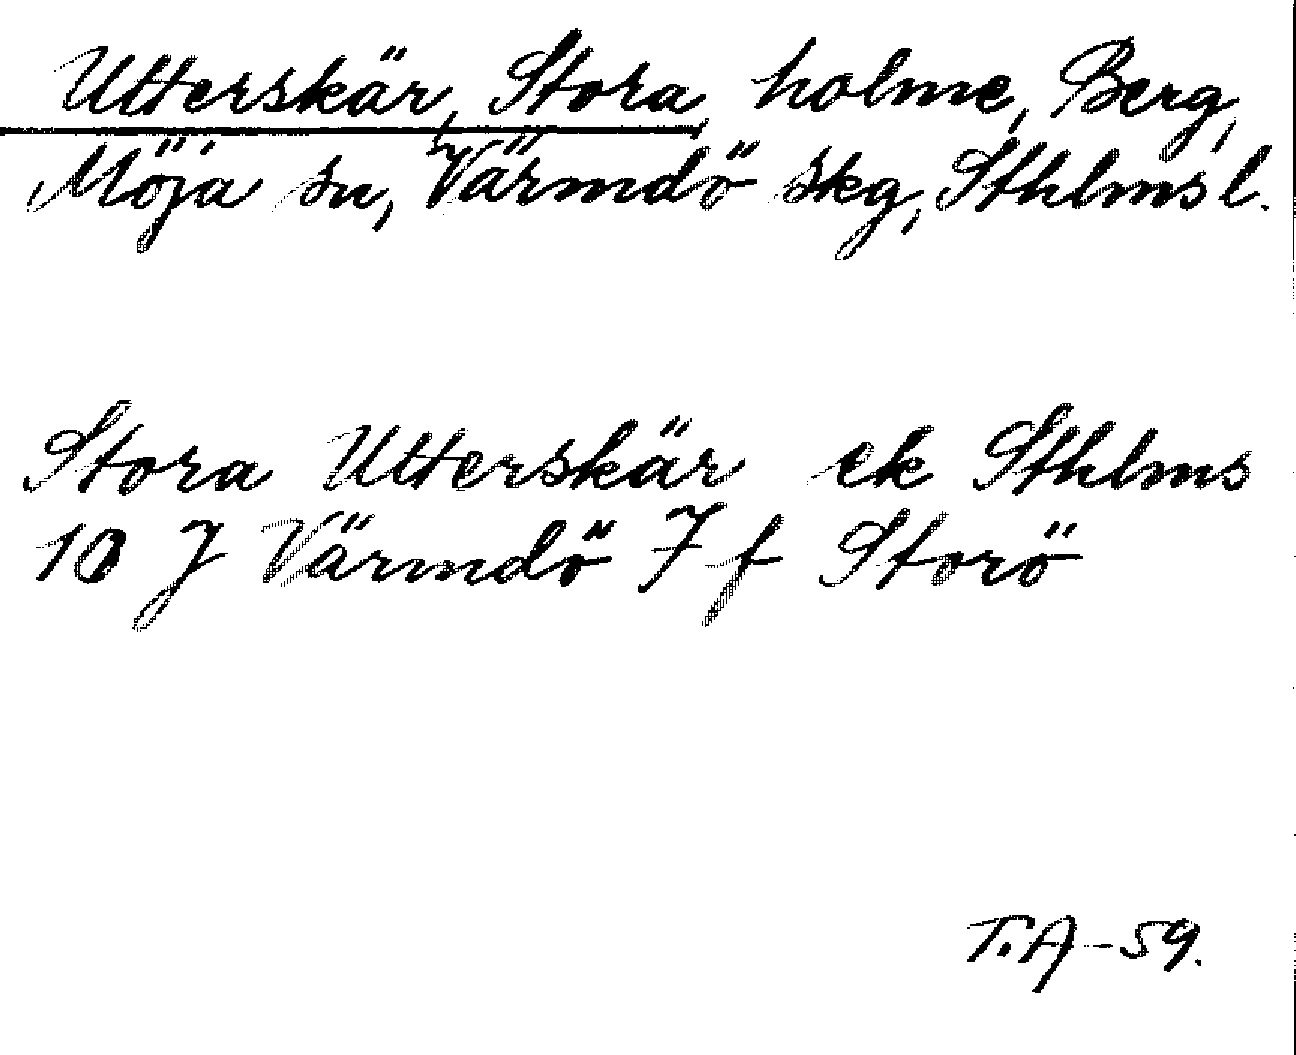 Utterskär, Stora, holme, Berg,
Möja sn, Värmdö skg, Sthlms l.
Stora Utterskär ek Sthlms
10 J Värmdö 7 f Storö
T.A-59.